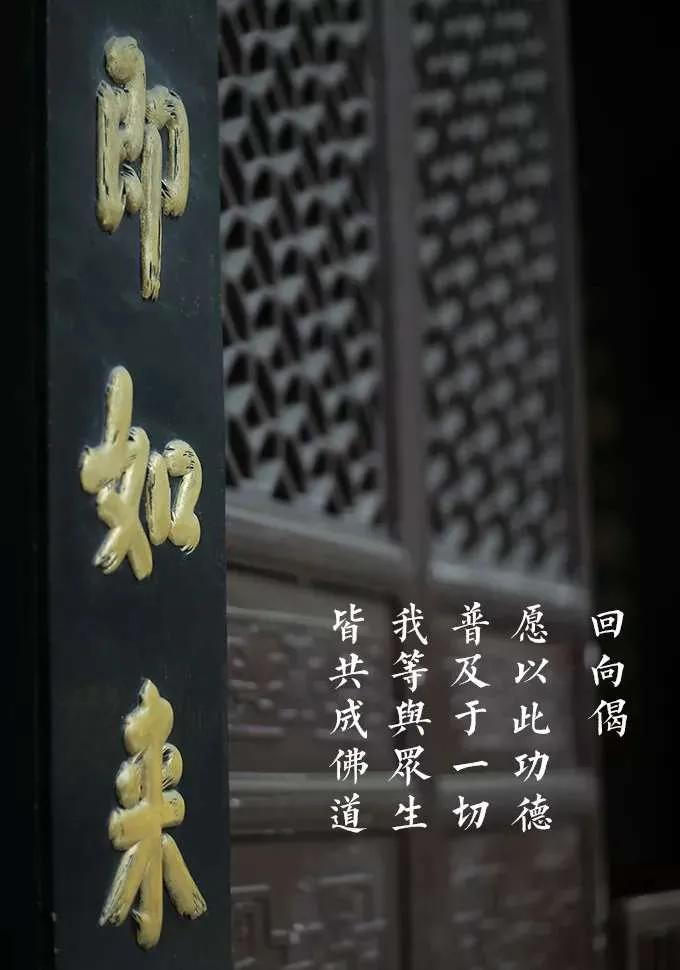 回向偈
愿以此功德
普及于一切
我等與眾生
皆共成佛道
如来